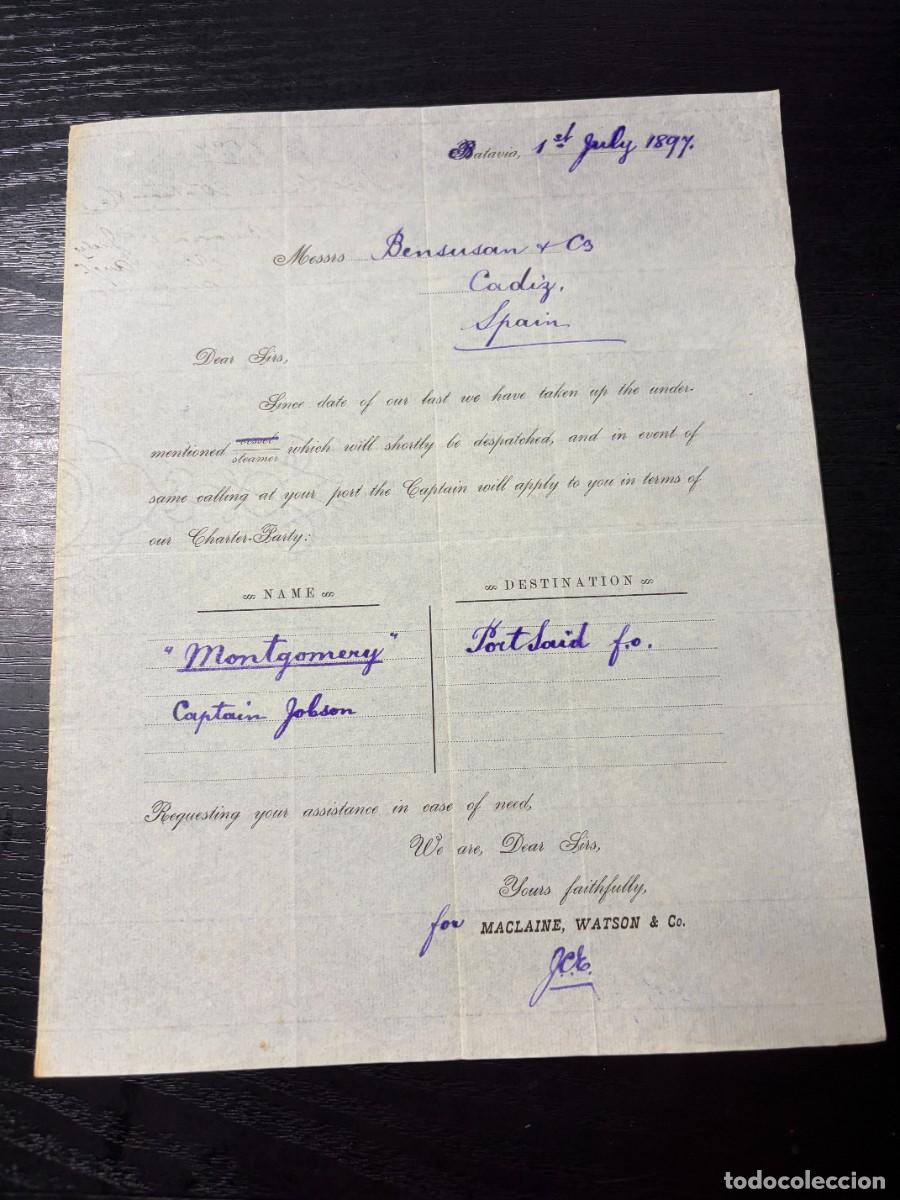 Batavia, 1st July 1897.
Messrs Bensusan & Co
Cadiz,
Spain
Dear Sirs,
Since date of our last we have taken up the under-
mentioned vessel
steamer which will shortly be despatched, and in event of
same calling at your port the Captain will apply to you in terms of
our Charter-Party:
NAME
DESTINATION
"Montgomery"
Port Said f.o.
Captain Jobson
Requesting your assistance in case of need,
We are, Dear Sirs,
Yours faithfully,
for MACLAINE, WATSON & Co.
todocoleccion